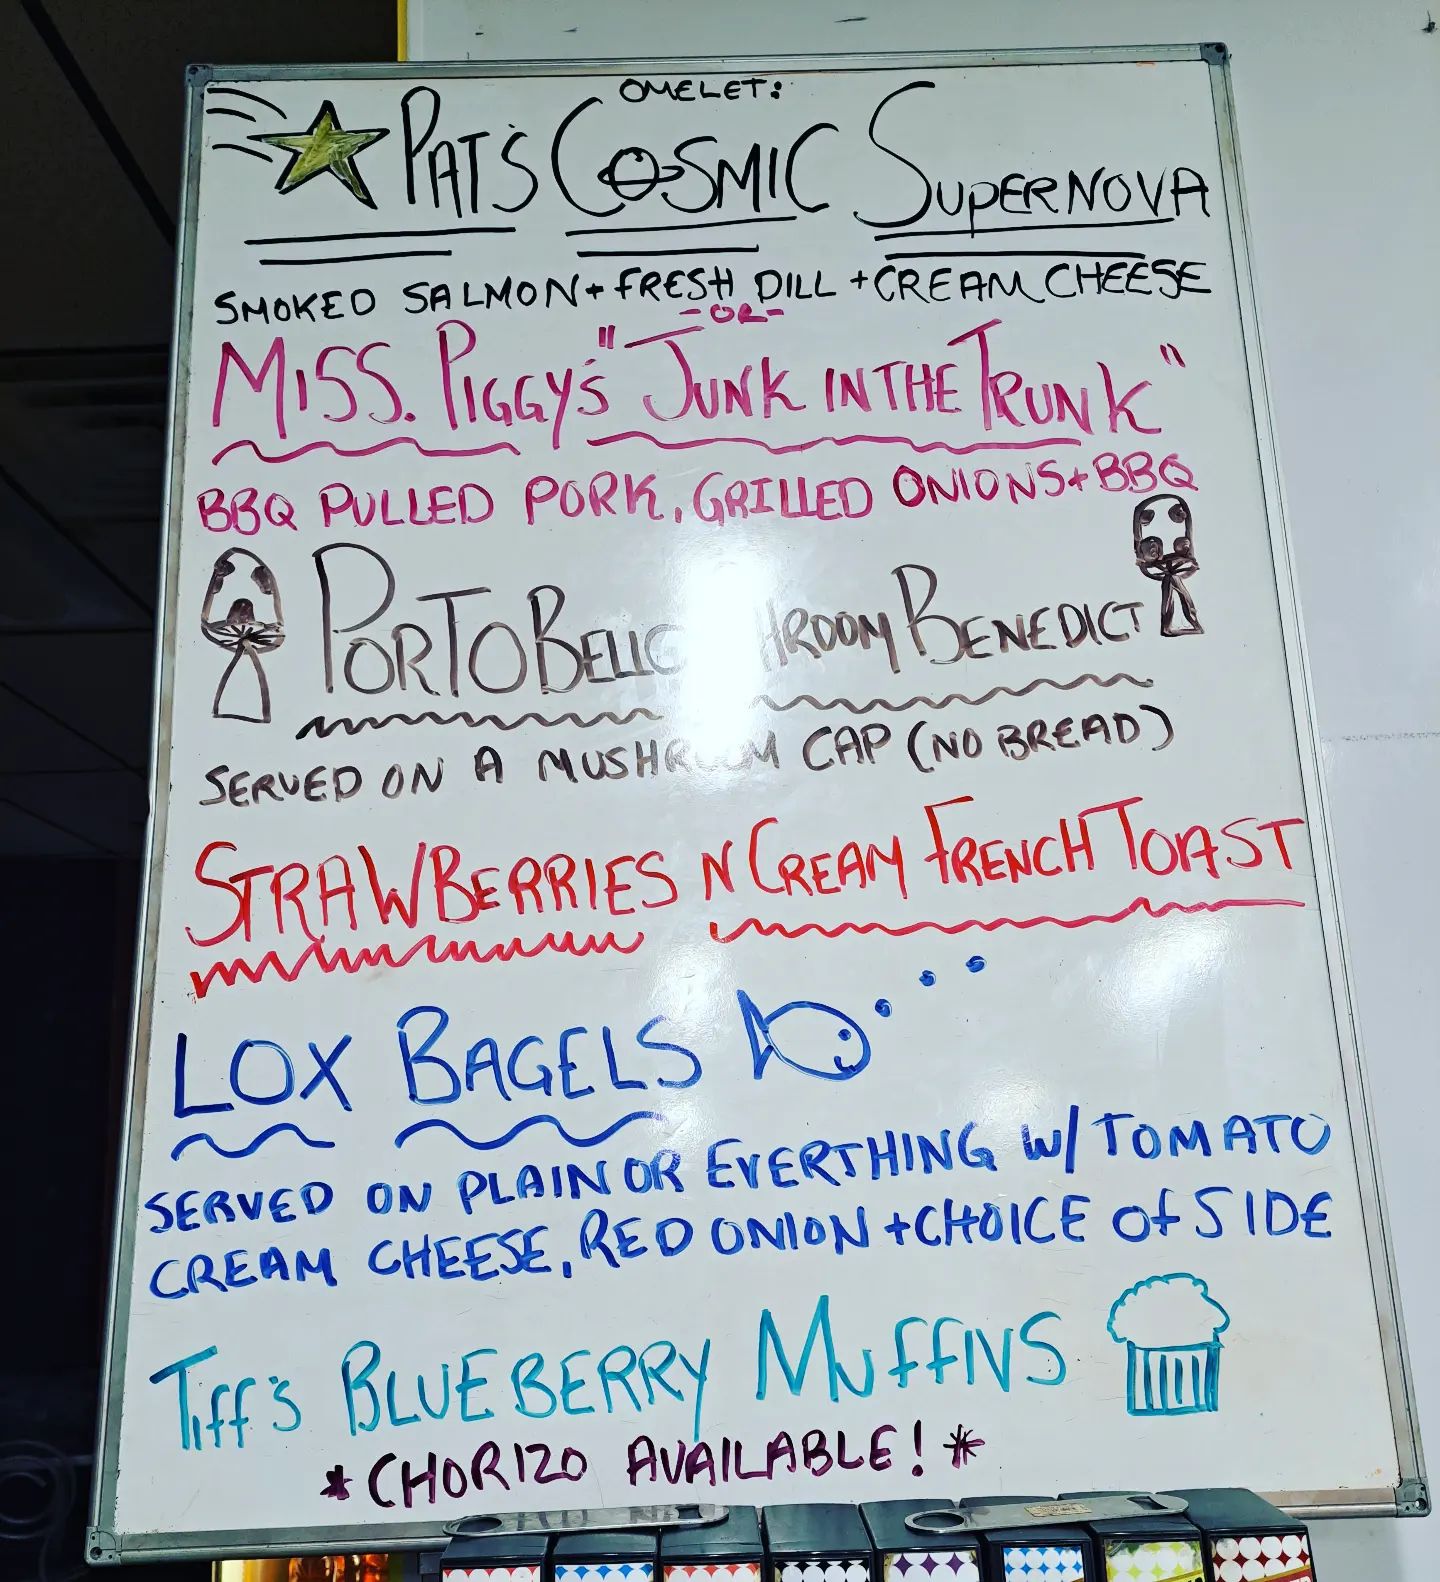 OMELET:
PAT'S COSMIC SUPERNOVA
SMOKED SALMON + FRESH DILL + CREAM CHEESE
-OR-
MISS. PIGGY'S "JUNK IN THE TRUNK"
BBQ PULLED PORK, GRILLED ONIONS + BBQ
PORTOBELLO BENEDICT
SERVED ON A MUSHROOM CAP (NO BREAD)
STRAWBERRIES N CREAM FRENCH TOAST
LOX BAGELS
SERVED ON PLAIN OR EVERTHING W/ TOMATO
CREAM CHEESE, RED ONION + CHOICE Of SIDE
Tiff'S BLUEBERRY MUffINS
*CHORIZO AVAILABLE! *